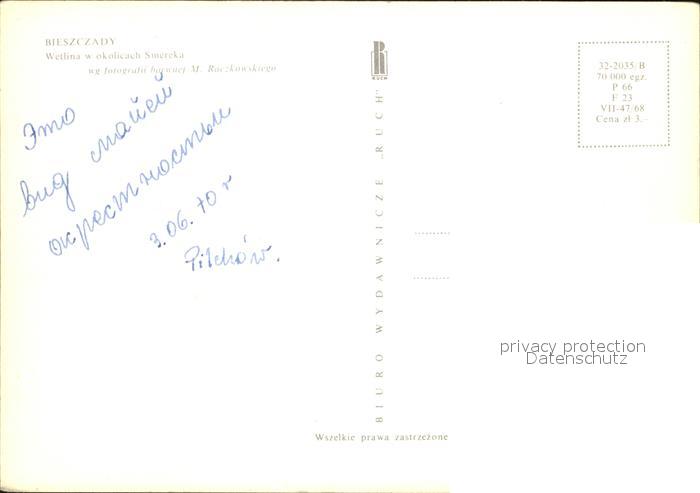 BIESZCZADY
Wetlina w okolicach Smereka
wg fotografii barwnej M. Raczkowskiego
Это
вид
окрестностьи
3.06.70 г
Pilchów.
R
RUCH
BIURO WYDAWNICZE „RUCH”
32-2035/B
70 000 egz.
P 66
F 23
VII-47/68
Cena zł 3.-
privacy protection
Datenschutz
Wszelkie prawa zastrzeżone